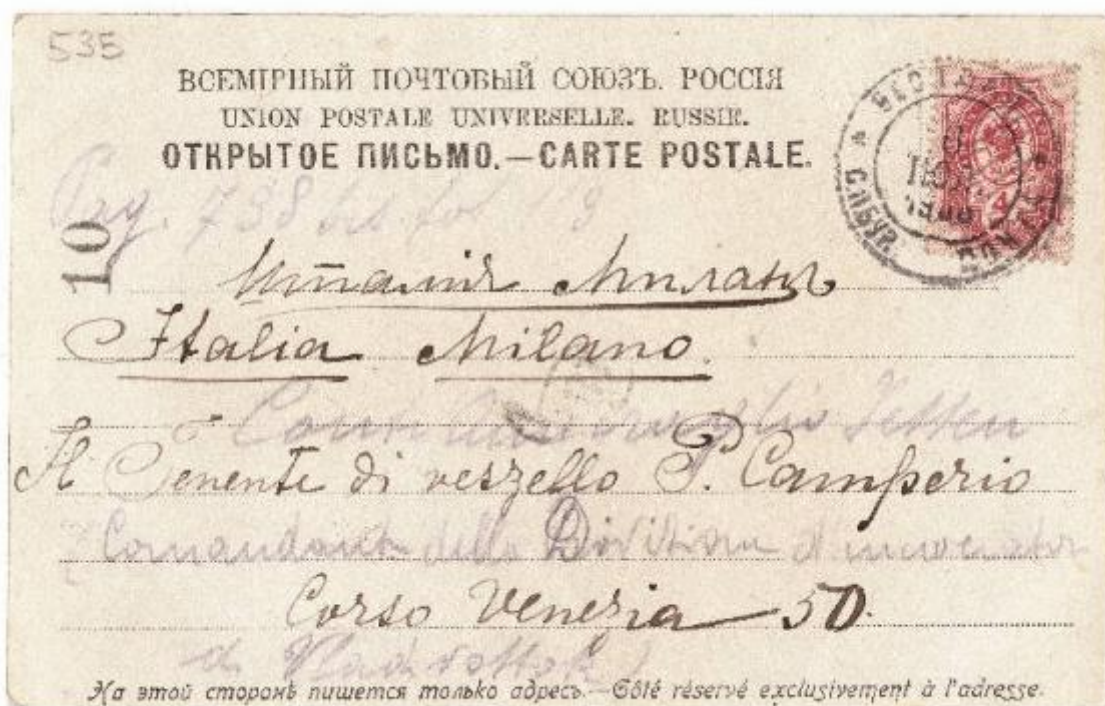 535
ВСЕМІРНЫЙ ПОЧТОВЫЙ СОЮЗЪ. РОССІЯ
UNION POSTALE UNIVERSELLE. RUSSIE.
ОТКРЫТОЕ ПИСЬМО.—CARTE POSTALE.
Pag. 738
10
Италія Миланъ
Italia Milano.
Il Tenente di veszello P. Camperio
Comandante della Divisione
Corso Venezia 50.
На этой сторонѣ пишется только адресъ.—Côté réservé exclusivement à l'adresse.